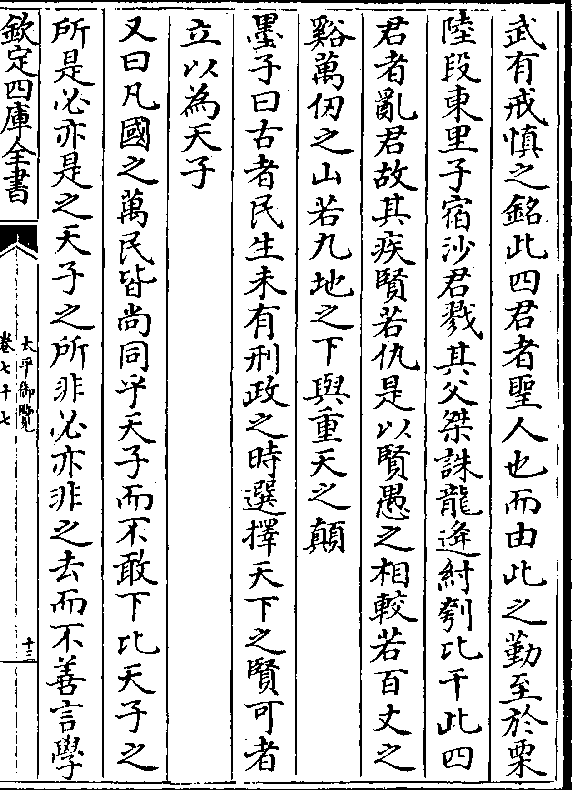 武有戒慎之銘此四君者聖人也而由此之勤至於栗
陸段東里子宿沙君戮其父桀誅龍逄紂刳比干此四
君者亂君故其疾賢若仇是以賢愚之相較若百丈之
谿萬仞之山若九地之下與重天之顛
墨子曰古者民生未有刑政之時選擇天下之賢可者
立以為天子
又曰凡國之萬民皆尚同乎天子而不敢下比天子之
所是必亦是之天子之所非必亦非之去而不善言學
欽定四庫全書
太平御覽
卷七十七
十三